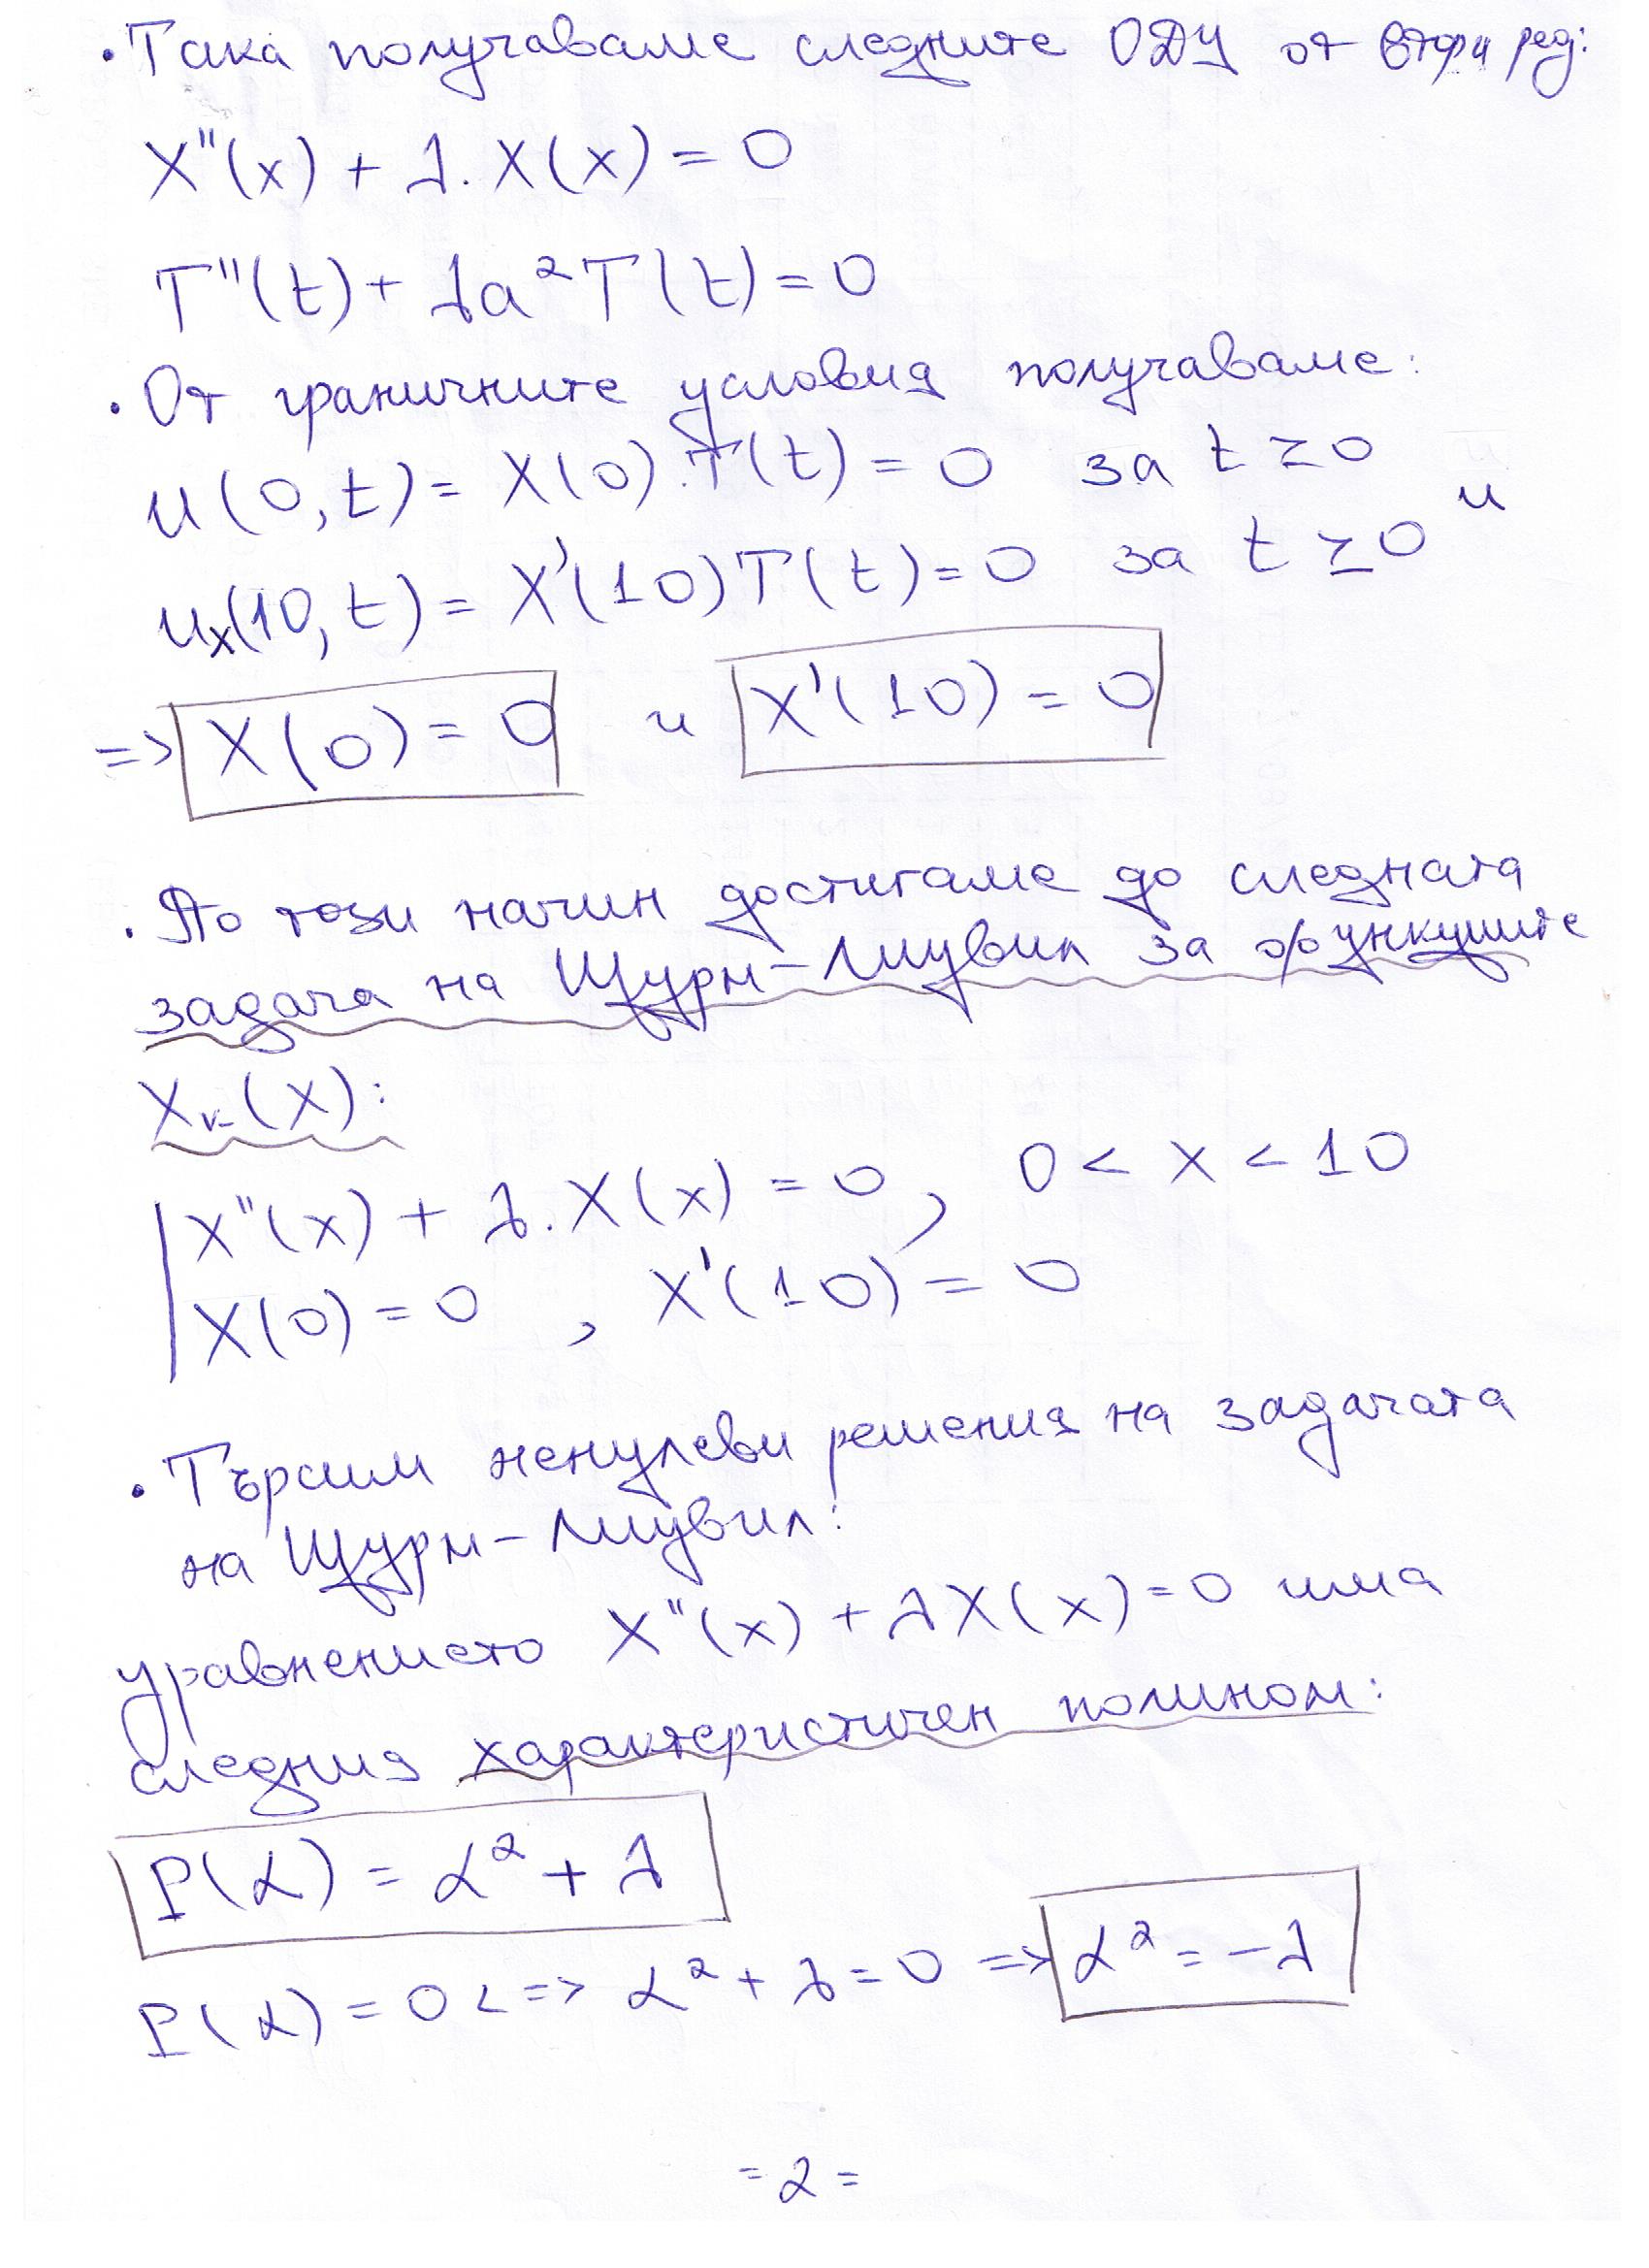 • Така получаваме следните ОДУ от втори ред:
X''(x) + λ. X(x) = 0
T''(t) + λa²T(t) = 0
• От граничните условия получаваме:
u(0,t) = X(0).T(t) = 0 за t ≥ 0 и
uₓ(10,t) = X'(10)T(t) = 0 за t ≥ 0
=> X(0) = 0 и X'(10) = 0
• По този начин достигаме до следната
задача на Щурм-Лиувил за функциите
Xₖ(x):
X''(x) + λ. X(x) = 0, 0 < x < 10
X(0) = 0 , X'(10) = 0
• Търсим ненулеви решения на задачата
на Щурм-Лиувил:
уравнението X''(x) + λX(x) = 0 има
следния характеристичен полином:
P(α) = α² + λ
P(α) = 0 <=> α² + λ = 0 => α² = -λ
= 2 =